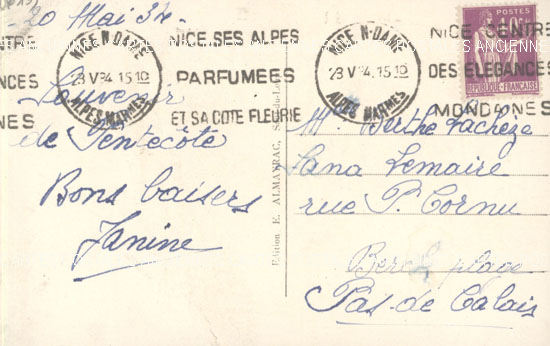 20 Mai 34 -
Souvenir
de Pentecôte
Bons baisers
Janine
NICE N-DAME
23 V 34. 15 10
ALPES MARMES
NICE SES ALPES
PARFUMEES
ET SA COTE FLEURIE
NICE N-DAME
23 V 34. 15 10
ALPES MARMES
NICE CENTRE
DES ELEGANCES
MONDAINES
ENTRE
NCES
NES
POSTES
40c
REPUBLIQUE-FRANÇAISE
Edition E. ALMAYRAC,
Mlle Berthe Lachèze
Sana Lemaire
rue P. Cornu
Berck plage
Pas-de Calais